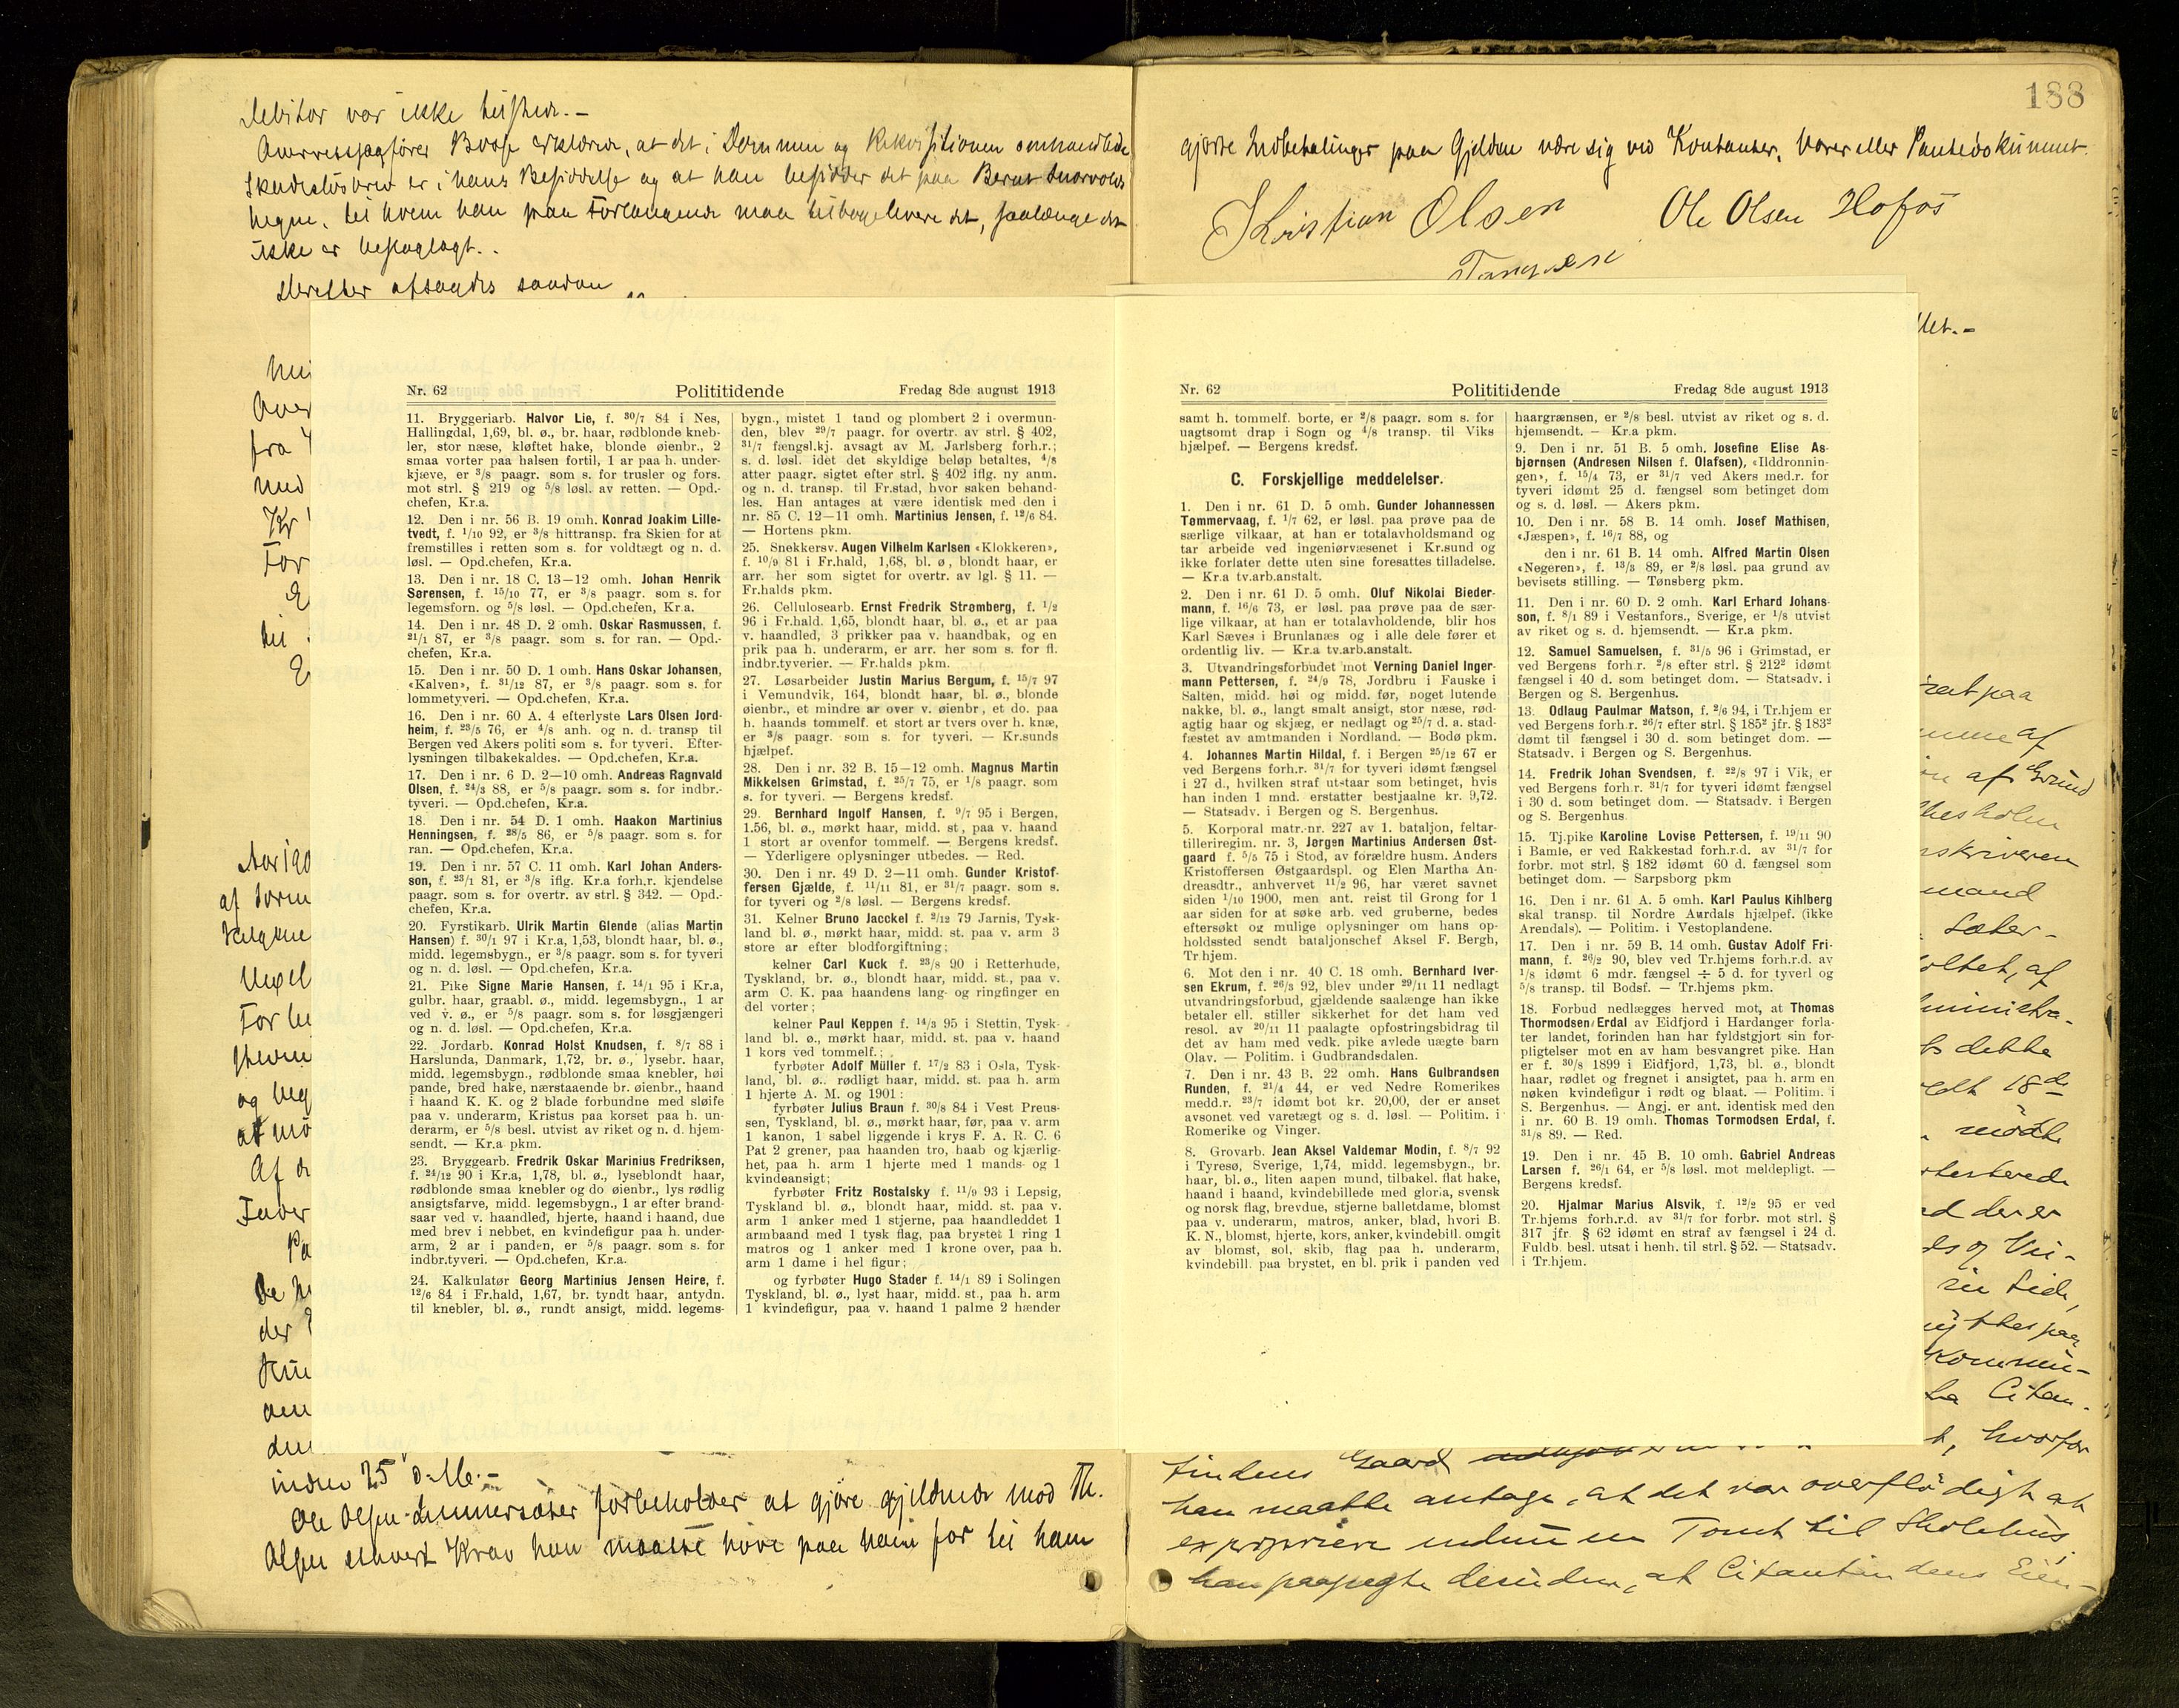 188
Debitor var ikke tilstede.-
Skadesløsbrev er i hans Besiddelse og at han besidder det paa Bernt
hegne, til hvem han paa Forlangende maa tilbagelevere det, saalænge det
ikke er beslaglagt..
Derefter afsagdes saadan
Nr. 62 Polititidende Fredag 8de august 1913
11. Bryggeriarb. Halvor Lie, f. 30/7 84 i Nes,
Hallingdal, 1,69, bl. ø., br. haar, rødblonde kneb-
ler, stor næse, kløftet hake, blonde øienbr., 2
smaa vorter paa halsen fortil, 1 ar paa h. under-
kjæve, er 3/8 paagr. som s. for trusler og fors.
mot strl. § 219 og 5/8 løsl. av retten. — Opd.-
chefen, Kr.a.
12. Den i nr. 56 B. 19 omh. Konrad Joakim Lille-
tvedt, f. 1/10 92, er 3/8 hittransp. fra Skien for at
fremstilles i retten som s. for voldtægt og n. d.
løsl. — Opd.chefen, Kr.a.
13. Den i nr. 18 C. 13—12 omh. Johan Henrik
Sørensen, f. 15/10 77, er 3/8 paagr. som s. for
legemsforn. og 5/8 løsl. — Opd.chefen, Kr.a.
14. Den i nr. 48 D. 2 omh. Oskar Rasmussen, f.
21/1 87, er 3/8 paagr. som s. for ran. — Opd.-
chefen, Kr.a.
15. Den i nr. 50 D. 1 omh. Hans Oskar Johansen,
«Kalven», f. 31/12 87, er 3/8 paagr. som s. for
lommetyveri. — Opd.chefen, Kr.a.
16. Den i nr. 60 A. 4 efterlyste Lars Olsen Jord-
heim, f. 23/5 76, er 4/8 anh. og n. d. transp til
Bergen ved Akers politi som s. for tyveri. Efter-
lysningen tilbakekaldes. — Opd.chefen, Kr.a.
17. Den i nr. 6 D. 2—10 omh. Andreas Ragnvald
Olsen, f. 24/3 88, er 5/8 paagr. som s. for indbr.-
tyveri. — Opd.chefen, Kr.a.
18. Den i nr. 54 D. 1 omh. Haakon Martinius
Henningsen, f. 28/5 86, er 5/8 paagr. som s. for
ran. — Opd.chefen, Kr.a.
19. Den i nr. 57 C. 11 omh. Karl Johan Anders-
son, f. 23/1 81, er 3/8 iflg. Kr.a forh.r. kjendelse
paagr. som s. for overtr. av strl. § 342. — Opd.-
chefen, Kr.a.
20. Fyrstikarb. Ulrik Martin Glende (alias Martin
Hansen) f. 30/1 97 i Kr.a, 1,53, blondt haar, bl. ø.,
midd. legemsbygn., er 3/8 paagr. som s. for tyveri
og n. d. løsl. — Opd.chefen, Kr.a.
21. Pike Signe Marie Hansen, f. 14/1 95 i Kr.a,
gulbr. haar, graabl. ø., midd. legemsbygn., 1 ar
ved v. ø., er 5/8 paagr. som s. for løsgjængeri
og n. d. løsl. — Opd.chefen, Kr.a.
22. Jordarb. Konrad Holst Knudsen, f. 8/7 88 i
Harslunda, Danmark, 1,72, br. ø., lysebr. haar,
midd. legemsbygn., rødblonde smaa knebler, høi
pande, bred hake, nærstaaende br. øienbr., haand
i haand K. K. og 2 blade forbundne med sløife
paa v. underarm, Kristus paa korset paa h. un-
derarm, er 5/8 besl. utvist av riket og n. d. hjem-
sendt. — Kr.a pkm.
23. Bryggearb. Fredrik Oskar Marinius Fredriksen,
f. 24/12 90 i Kr.a, 1,78, bl. ø., lyseblondt haar,
rødblonde smaa knebler og do øienbr., lys rødlig
ansigtsfarve, midd. legemsbygn., 1 ar efter brand-
saar ved v. haandled, hjerte, haand i haand, due
med brev i nebbet, en kvindefigur paa h. under-
arm, 2 ar i panden, er 5/8 paagr. som s. for
indbr.tyveri. — Opd.chefen, Kr.a.
24. Kalkulatør Georg Martinius Jensen Heire, f.
12/6 84 i Fr.hald, 1,67, br. tyndt haar, antydn.
til knebler, bl. ø., rundt ansigt, midd. legems-
bygn., mistet 1 tand og plombert 2 i overmun-
den, blev 29/7 paagr. for overtr. av strl. § 402,
31/7 fængsl.kj. avsagt av M. Jarlsberg forh.r.;
s. d. løsl. idet det skyldige beløp betaltes, 4/8
atter paagr. sigtet efter strl. § 402 iflg. ny anm.
og n. d. transp. til Fr.stad, hvor saken behand-
les. Han antages at være identisk med den i
nr. 85 C. 12—11 omh. Martinius Jensen, f. 12/6 84.
— Hortens pkm.
25. Snekkersv. Augen Vilhelm Karlsen «Klokkeren»,
f. 10/9 81 i Fr.hald, 1,68, bl. ø, blondt haar, er
arr. her som sigtet for overtr. av lgl. § 11. —
Fr.halds pkm.
26. Cellulosearb. Ernst Fredrik Strømberg, f. 1/2
96 i Fr.hald. 1,65, blondt haar, bl. ø., et ar paa
v. haandled, 3 prikker paa v. haandbak, og en
prik paa h. underarm, er arr. her som s. for fl.
indbr.tyverier. — Fr.halds pkm.
27. Løsarbeider Justin Marius Bergum, f. 15/7 97
i Vemundvik, 164, blondt haar, bl. ø., blonde
øienbr., et mindre ar over v. øienbr, et do. paa
h. haands tommelf. et stort ar tvers over h. knæ,
er 3/8 paagr. som s. for tyveri. — Kr.sunds
hjælpef.
28. Den i nr. 32 B. 15—12 omh. Magnus Martin
Mikkelsen Grimstad, f. 25/7 75, er 1/8 paagr. som
s. for tyveri. — Bergens kredsf.
29. Bernhard Ingolf Hansen, f. 9/7 95 i Bergen,
1.56, bl. ø., mørkt haar, midd. st, paa v. haand
1 stort ar ovenfor tommelf. — Bergens kredsf.
— Yderligere oplysninger utbedes. — Red.
30. Den i nr. 49 D. 2—11 omh. Gunder Kristof-
fersen Gjælde, f. 11/11 81, er 31/7 paagr. som s.
for tyveri og 2/8 løsl. — Bergens kredsf.
31. Kelner Bruno Jacckel f. 2/12 79 Jarnis, Tysk-
land bl. ø., mørkt haar, midd. st. paa v. arm 3
store ar efter blodforgiftning;
kelner Carl Kuck f. 23/8 90 i Retterhude,
Tyskland, br. ø., blondt haar, midd. st., paa v.
arm C. K. paa haandens lang- og ringfinger en
del vorter;
kelner Paul Keppen f. 14/3 95 i Stettin, Tysk-
land bl. ø., mørkt haar, midd. st. paa v. haand
1 kors ved tommelf.;
fyrbøter Adolf Müller f. 17/2 83 i Osla, Tysk-
land, bl. ø.. rødligt haar, midd. st. paa h. arm
1 hjerte A. M. og 1901:
fyrbøter Julius Braun f. 30/8 84 i Vest Preus-
sen, Tyskland, bl. ø., mørkt haar, før, paa v. arm
1 kanon, 1 sabel liggende i krys F. A. R. C. 6
Pat 2 grener, paa haanden tro, haab og kjærlig-
het, paa h. arm 1 hjerte med 1 mands- og 1
kvindeansigt;
fyrbøter Fritz Rostalsky f. 11/9 93 i Lepsig,
Tyskland bl. ø., blondt haar, midd. st. paa v.
arm 1 anker med 1 stjerne, paa haandleddet 1
armbaand med 1 tysk flag, paa brystet 1 ring 1
matros og 1 anker med 1 krone over, paa h.
arm 1 dame i hel figur;
og fyrbøter Hugo Stader f. 14/1 89 i Solingen
Tyskland, bl. ø., lyst haar, midd. st., paa h. arm
1 kvindefigur, paa v. haand 1 palme 2 hænder
inden 25 d. Me.-
Ole Olsen forbeholder at gjøre gjeldende mod Th.
Olsen ethvert Krav han maatte have paa ham for til ham
gjorte Indbetalinger paa Gjelden være sig ved Kontanter, Varer eller Pantedokument.
Kristian Olsen Ole Olsen Hofos
Nr. 62 Polititidende Fredag 8de august 1913
samt h. tommelf. borte, er 2/8 paagr. som s. for
uagtsomt drap i Sogn og 4/8 transp. til Viks
hjælpef. — Bergens kredsf.
C. Forskjellige meddelelser.
1. Den i nr. 61 D. 5 omh. Gunder Johannessen
Tømmervaag, f. 1/7 62, er løsl. paa prøve paa de
særlige vilkaar, at han er totalavholdsmand og
tar arbeide ved ingeniørvæsenet i Kr.sund og
ikke forlater dette uten sine foresattes tilladelse.
— Kr.a tv.arb.anstalt.
2. Den i nr. 61 D. 5 omh. Oluf Nikolai Bieder-
mann, f. 16/6 73, er løsl. paa prøve paa de sær-
lige vilkaar, at han er totalavholdende, blir hos
Karl Sæves i Brunlanæs og i alle dele fører et
ordentlig liv. — Kr.a tv.arb.anstalt.
3. Utvandringsforbudet mot Verning Daniel Inger-
mann Pettersen, f. 24/9 78, Jordbru i Fauske i
Salten, midd. høi og midd. før, noget lutende
nakke, bl. ø., langt smalt ansigt, stor næse, rød-
agtig haar og skjæg, er nedlagt og 25/7 d. a. stad-
fæstet av amtmanden i Nordland. — Bodø pkm.
4. Johannes Martin Hildal, f. i Bergen 25/12 67 er
ved Bergens forh.r. 31/7 for tyveri idømt fængsel
i 27 d., hvilken straf utstaar som betinget, hvis
han inden 1 mnd. erstatter bestjaalne kr. 9,72.
— Statsadv. i Bergen og S. Bergenhus.
5. Korporal matr.-nr. 227 av 1. bataljon, feltar-
tilleriregim. nr. 3, Jørgen Martinius Andersen Øst-
gaard f. 5/5 75 i Stod, av forældre husm. Anders
Kristoffersen Østgaardspl. og Elen Martha An-
dreasdtr., anhvervet 11/2 96, har været savnet
siden 1/10 1900, men ant. reist til Grong for 1
aar siden for at søke arb. ved gruberne, bedes
eftersøkt og mulige oplysninger om hans op-
holdssted sendt bataljonschef Aksel F. Bergh,
Tr.hjem.
6. Mot den i nr. 40 C. 18 omh. Bernhard Iver-
sen Ekrum, f. 26/3 92, blev under 29/11 11 nedlagt
utvandringsforbud, gjældende saalænge han ikke
betaler ell. stiller sikkerhet for det ham ved
resol. av 20/11 11 paalagte opfostringsbidrag til
det av ham med vedk. pike avlede uægte barn
Olav. — Politim. i Gudbrandsdalen.
7. Den i nr. 43 B. 22 omh. Hans Gulbrandsen
Runden, f. 21/4 44, er ved Nedre Romerikes
medd.r. 23/7 idømt bot kr. 20,00, der er anset
avsonet ved varetægt og s. d. løsl. — Politim. i
Romerike og Vinger.
8. Grovarb. Jean Aksel Valdemar Modin, f. 8/7 92
i Tyresø, Sverige, 1,74, midd. legemsbygn., br.
haar, bl. ø., liten aapen mund, tilbakel. flat hake,
haand i haand, kvindebillede med gloria, svensk
og norsk flag, brevdue, stjerne balletdame, blomst
paa v. underarm, matros, anker, blad, hvori B.
K. N., blomst, hjerte, kors, anker, kvindebill. omgit
av blomst, sol, skib, flag paa h. underarm,
kvindebill. paa brystet, en bl. prik i panden ved
haargrænsen, er 2/8 besl. utvist av riket og s. d.
hjemsendt. — Kr.a pkm.
9. Den i nr. 51 B. 5 omh. Josefine Elise As-
bjørnsen (Andresen Nilsen f. Olafsen), «Ilddronnin-
gen», f. 15/4 73, er 31/7 ved Akers med.r. for
tyveri idømt 25 d. fængsel som betinget dom
og s. d. løsl. — Akers pkm.
10. Den i nr. 58 B. 14 omh. Josef Mathisen,
«Jæspen», f. 16/7 88, og
den i nr. 61 B. 14 omh. Alfred Martin Olsen
«Negeren», f. 13/3 89, er 2/8 løsl. paa grund av
bevisets stilling. — Tønsberg pkm.
11. Den i nr. 60 D. 2 omh. Karl Erhard Johans-
son, f. 8/1 89 i Vestanfors., Sverige, er 1/8 utvist
av riket og s. d. hjemsendt. — Kr.a pkm.
12. Samuel Samuelsen, f. 31/5 96 i Grimstad, er
ved Bergens forh.r. 2/8 efter strl. § 212² idømt
fængsel i 40 d. som betinget dom. — Statsadv. i
Bergen og S. Bergenhus.
13. Odlaug Paulmar Matson, f. 2/6 94, i Tr.hjem er
ved Bergens forh.r. 26/7 efter strl. § 185² jfr. § 183²
dømt til fængsel i 30 d. som betinget dom. —
Statsadv. i Bergen og S. Bergenhus.
14. Fredrik Johan Svendsen, f. 22/8 97 i Vik, er
ved Bergens forh.r. 31/7 for tyveri idømt fængsel
i 30 d. som betinget dom. — Statsadv. i Bergen
og S. Bergenhus
15. Tj.pike Karoline Lovise Pettersen, f. 19/11 90
i Bamle, er ved Rakkestad forh.r.d. av 31/7 for
forbr. mot strl. § 182 idømt 60 d. fængsel som
betinget dom. — Sarpsborg pkm
16. Den i nr. 61 A. 5 omh. Karl Paulus Kihlberg
skal transp. til Nordre Aurdals hjælpef. (ikke
Arendals). — Politim. i Vestoplandene.
17. Den i nr. 59 B. 14 omh. Gustav Adolf Fri-
mann, f. 26/2 90, blev ved Tr.hjems forh.r.d. av
1/8 idømt 6 mdr. fængsel ÷ 5 d. for tyveri og
5/8 transp. til Bodsf. — Tr.hjems pkm.
18. Forbud nedlægges herved mot, at Thomas
Thormodsen Erdal av Eidfjord i Hardanger forla-
ter landet, forinden han har fyldstgjort sin for-
pligtelser mot en av ham besvangret pike. Han
er f. 30/8 1899 i Eidfjord, 1,73, bl. ø., blondt
haar, rødlet og fregnet i ansigtet, paa h. arm en
nøken kvindefigur i rødt og blaat. — Politim. i
S. Bergenhus. — Angj. er ant. identisk med den
i nr. 60 B. 19 omh. Thomas Tormodsen Erdal, f.
31/8 89. — Red.
19. Den i nr. 45 B. 10 omh. Gabriel Andreas
Larsen f. 26/1 64, er 5/8 løsl. mot meldepligt. —
Bergens kredsf.
20. Hjalmar Marius Alsvik, f. 12/2 95 er ved
Tr.hjems forh.r.d. av 31/7 for forbr. mot strl. §
317 jfr. § 62 idømt en straf av fængsel i 24 d.
Fuldb. besl. utsat i henh. til strl. § 52. — Statsadv.
i Tr.hjem.
han maatte antage, at det var overflødigt at
expropriere endnu en Tomt til Skolehus,
han paapegte desuden, at Citantindens Eien-